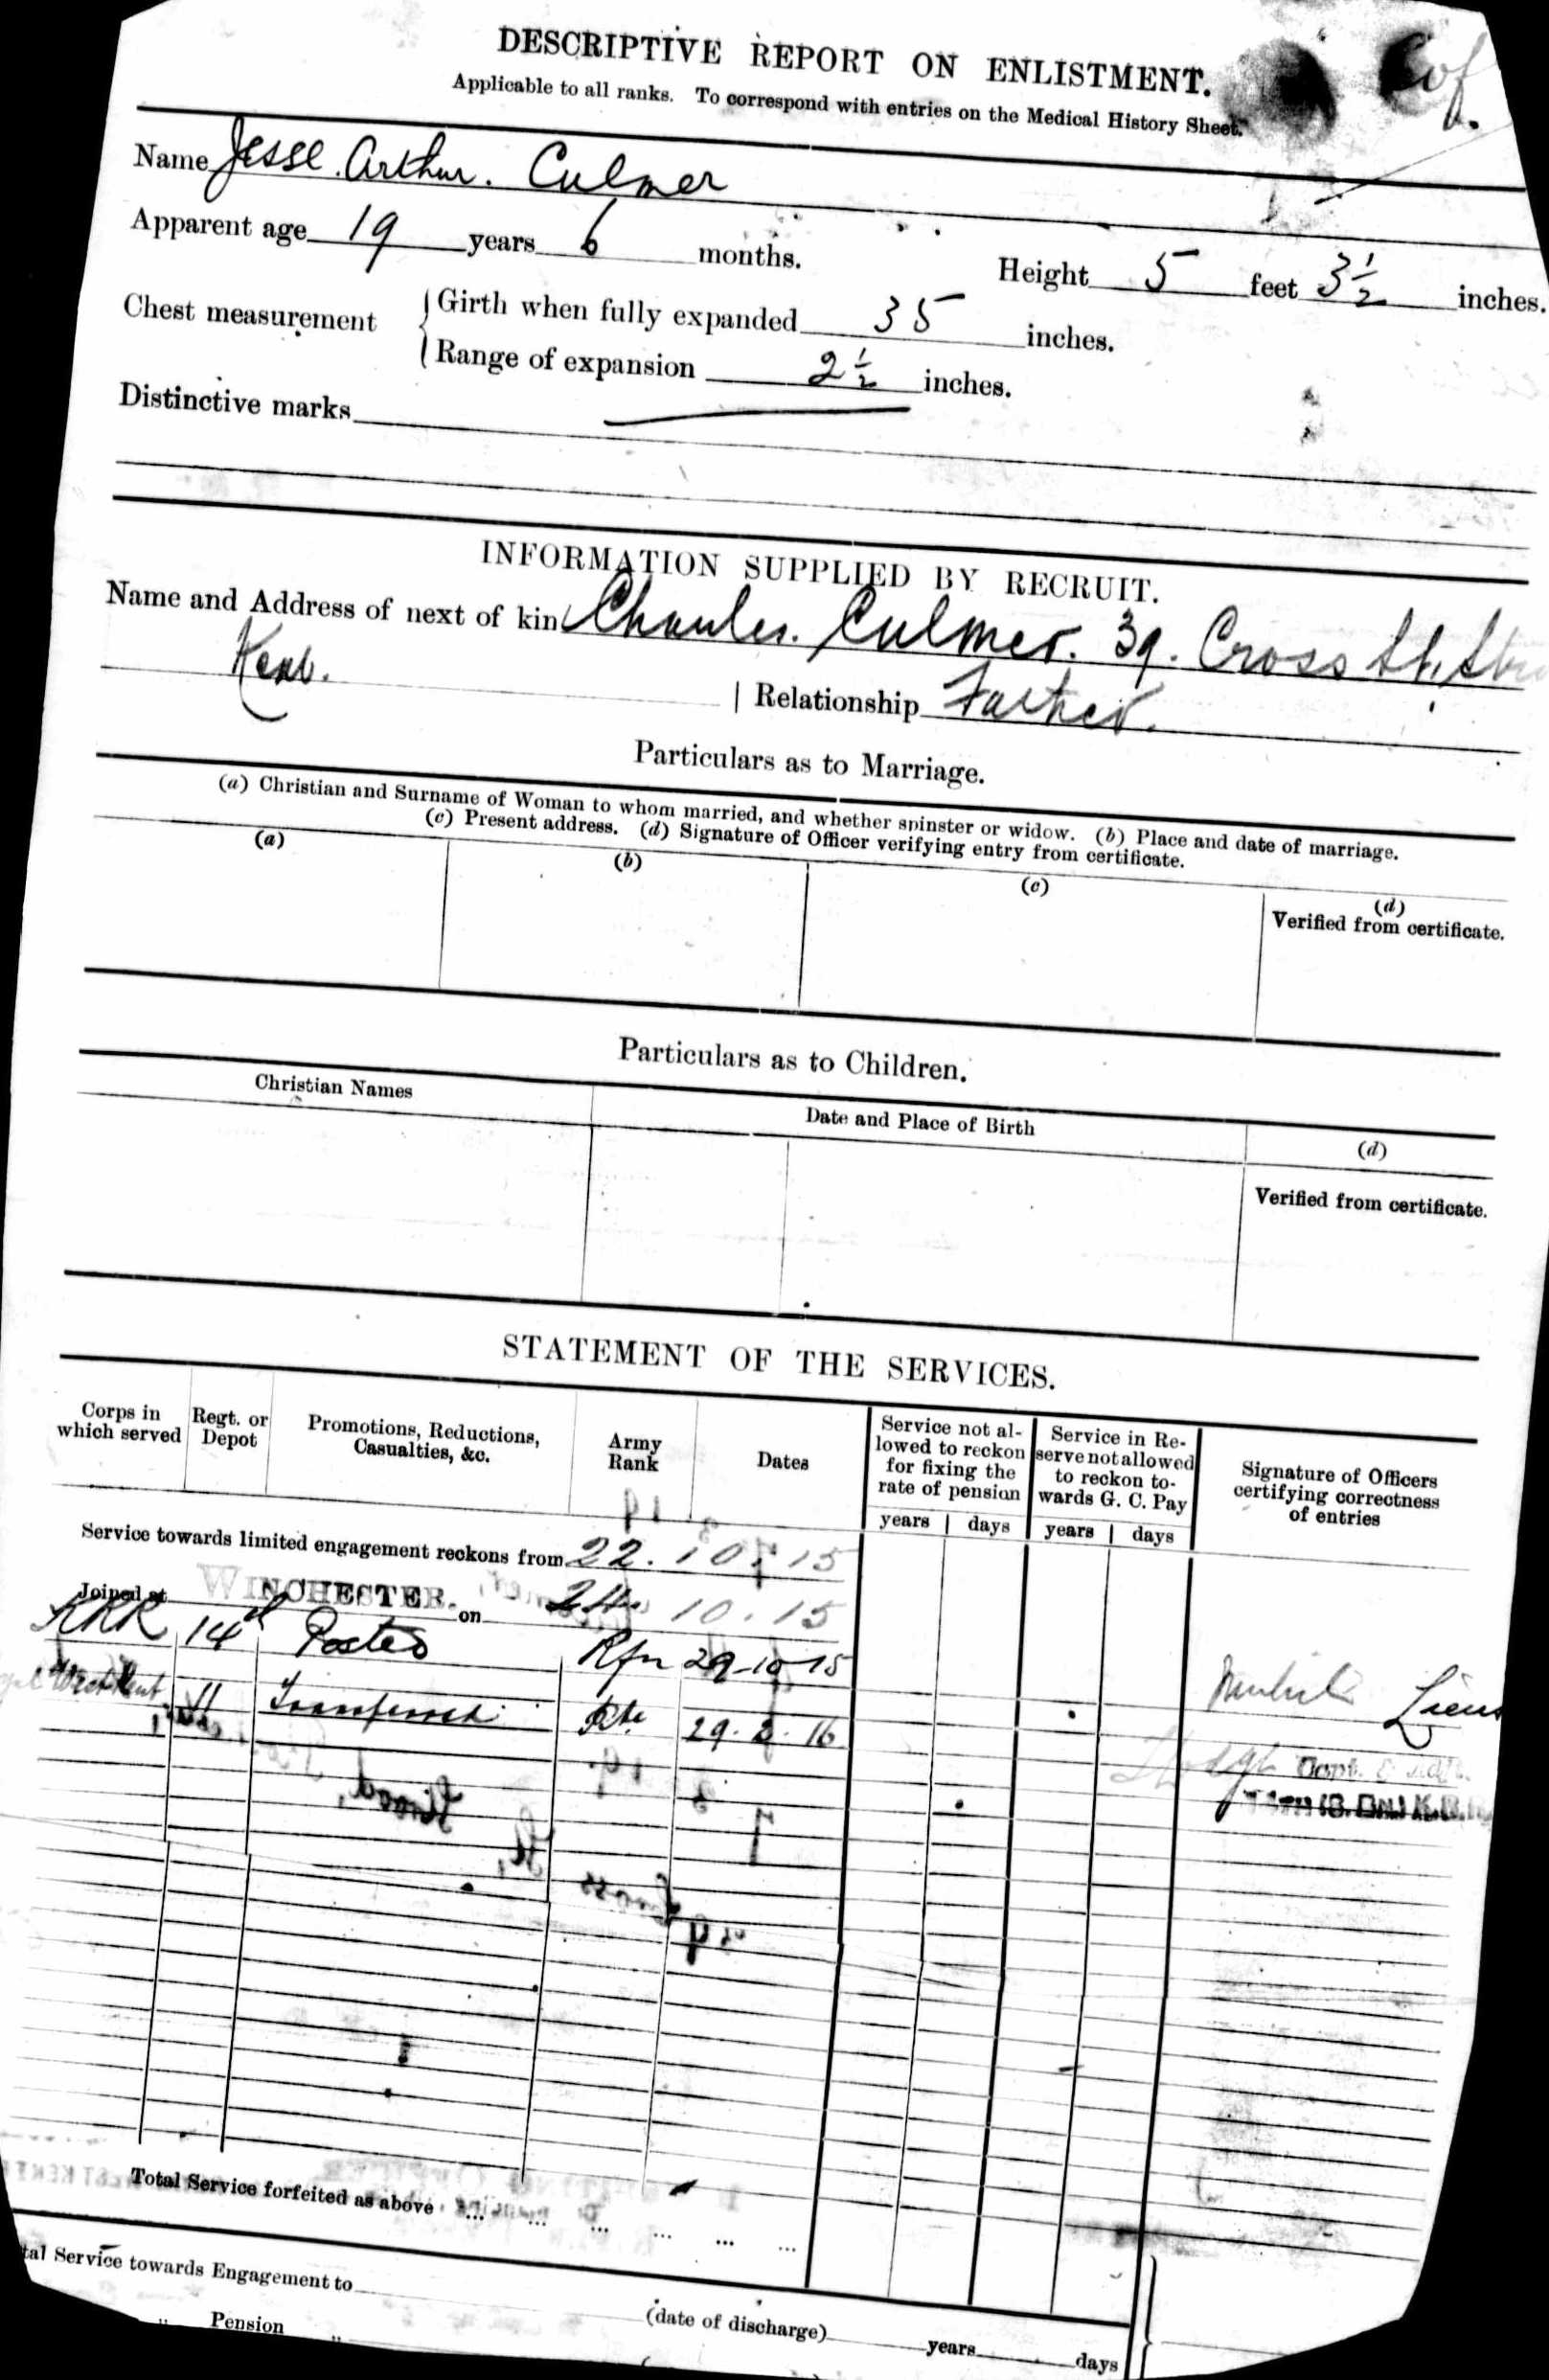 DESCRIPTIVE REPORT ON ENLISTMENT.
Applicable to all ranks. To correspond with entries on the Medical History Sheet.
Name Jesse. Arthur. Culmer
Apparent age 19 years 6 months.
Height 5 feet 3½ inches.
Chest measurement
Girth when fully expanded 35 inches.
Range of expansion 2½ inches.
Distinctive marks
INFORMATION SUPPLIED BY RECRUIT.
Name and Address of next of kin Charles. Culmer. 39. Cross St.
Kent.
Relationship Father.
Particulars as to Marriage.
(a) Christian and Surname of Woman to whom married, and whether spinster or widow. (b) Place and date of marriage.
(c) Present address. (d) Signature of Officer verifying entry from certificate.
(a) (b) (c) (d)
Verified from certificate.
Particulars as to Children.
Christian Names Date and Place of Birth (d)
Verified from certificate.
STATEMENT OF THE SERVICES.
Corps in which served
Regt. or Depot
Promotions, Reductions, Casualties, &c.
Army Rank
Dates
Service not allowed to reckon for fixing the rate of pension
Service in Reserve not allowed to reckon towards G. C. Pay
Signature of Officers certifying correctness of entries
years days years days
Service towards limited engagement reckons from 22. 10. 15
Joined at WINCHESTER. on 24. 10. 15
KRR 14th Posted Rfn 29-10-15 Lieut
West Kent 11 Transferred Pte 29. 2. 16
Capt. & Adjt.
Total Service forfeited as above ... ... ... ... ... ...
tal Service towards Engagement to (date of discharge) years days
" Pension "